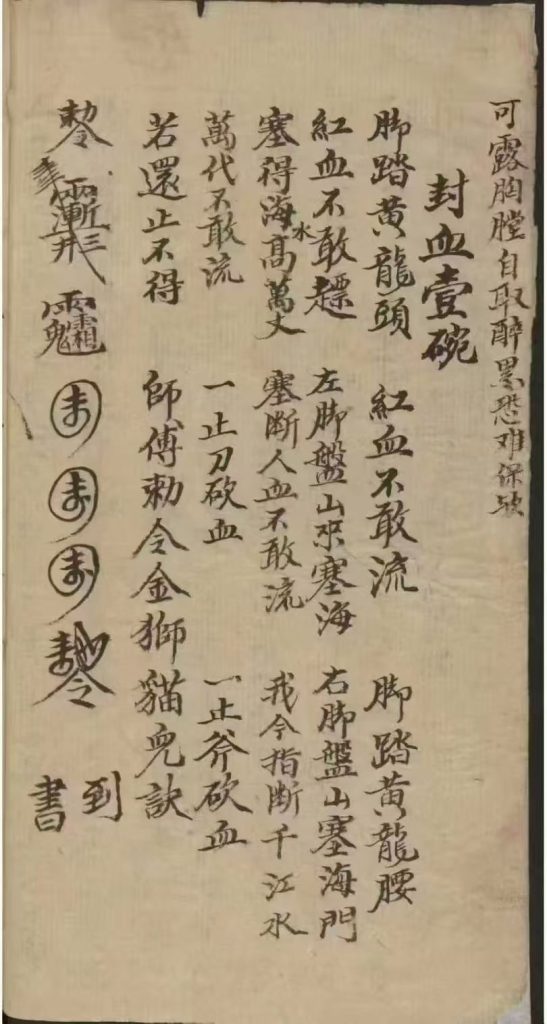 可露胸膛自取醉累恐难保
封血壹碗
脚踏黄龍頭 紅血不敢流 脚踏黄龍腰
紅血不敢趒 左脚盤山来塞海 右脚盤山塞海門
塞得海水高萬丈 塞断人血不敢流 我今指断千江水
萬代不敢流 一止刀砍血 一止斧砍血
若還止不得 師傅勅令金獅貓兒訣 到
書